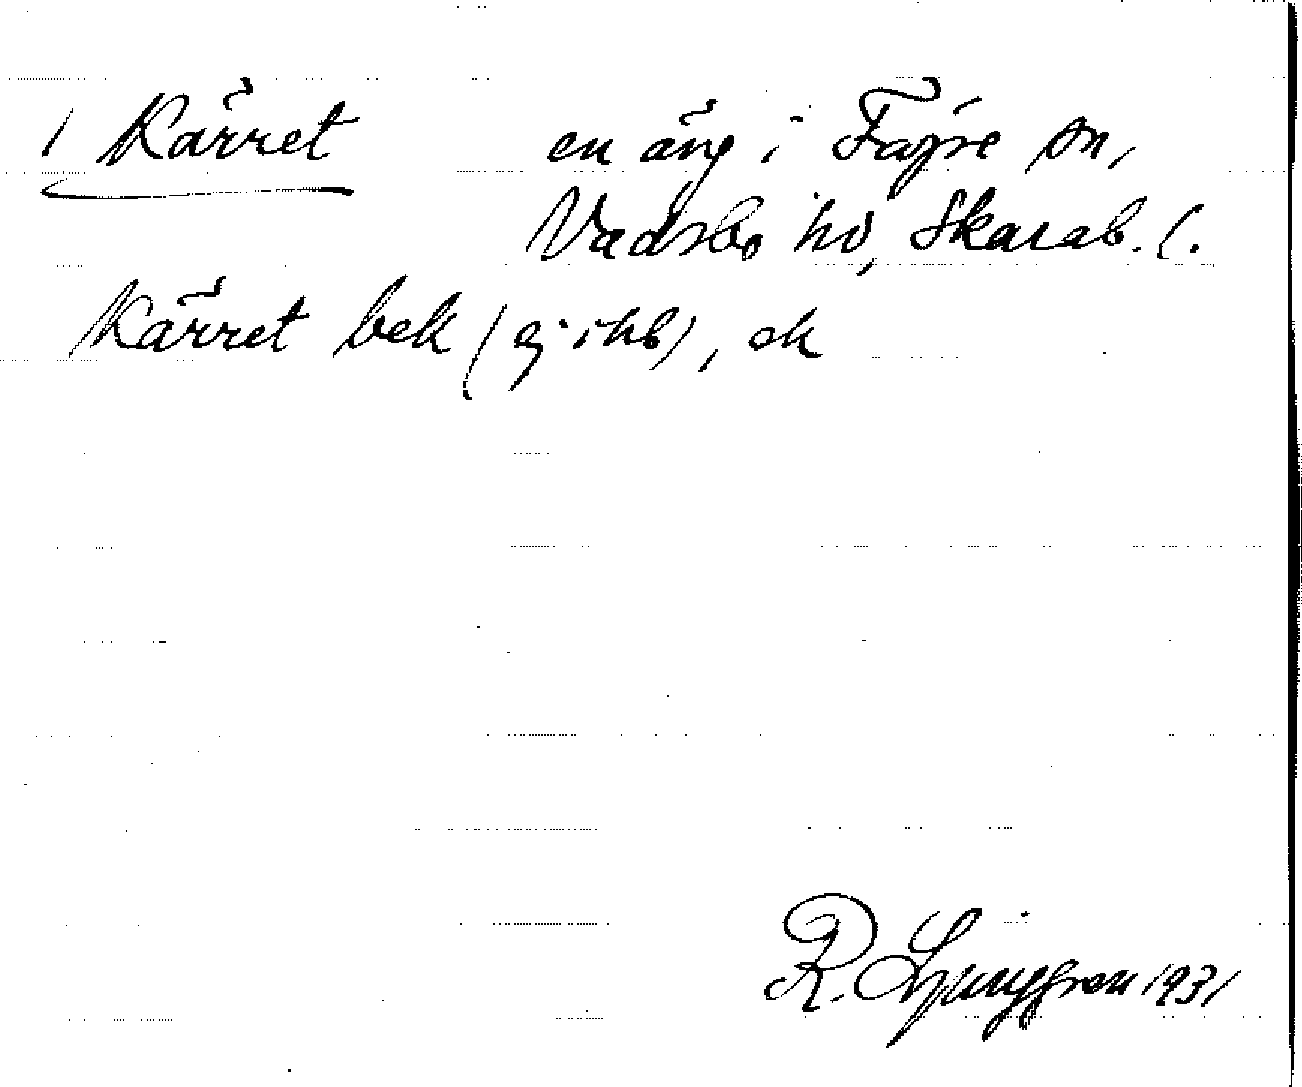 / Kärret en äng i Fägre sn,
Vadsbo hd, Skarab. l.
Kärret bek (ej ihb), ek
R. Ljunggren 1931